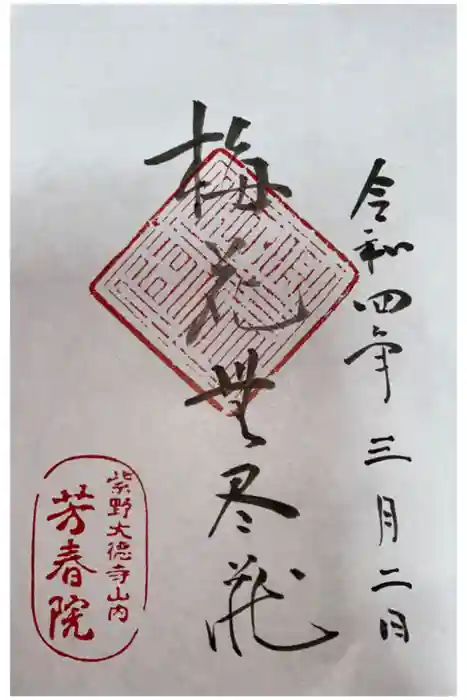 令和四年三月二日
梅花無尽蔵
紫野大徳寺山内
芳春院